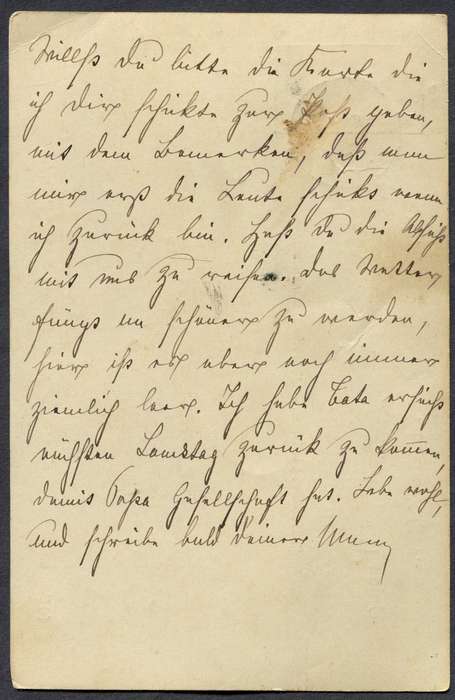 Willst du bitte die Karte die
ich dir schikte zur Post geben,
mit dem Bemerken, daß man
mir erst die Leute schikt wenn
ich zurück bin. Hast du die Absicht
mit uns zu reisen. Das Wetter
fängt an schöner zu werden,
hier ist es aber noch immer
ziemlich leer. Ich habe Tata ersucht
nächsten Samstag zurück zu kom̅en,
damit Papa Gesellschaft hat. Lebe wohl,
und schreibe bald deiner